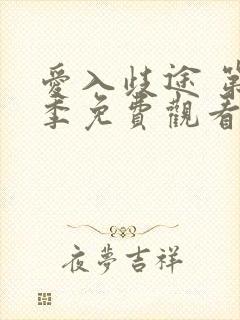 愛入歧途 第
季免費觀看
夜夢吉祥